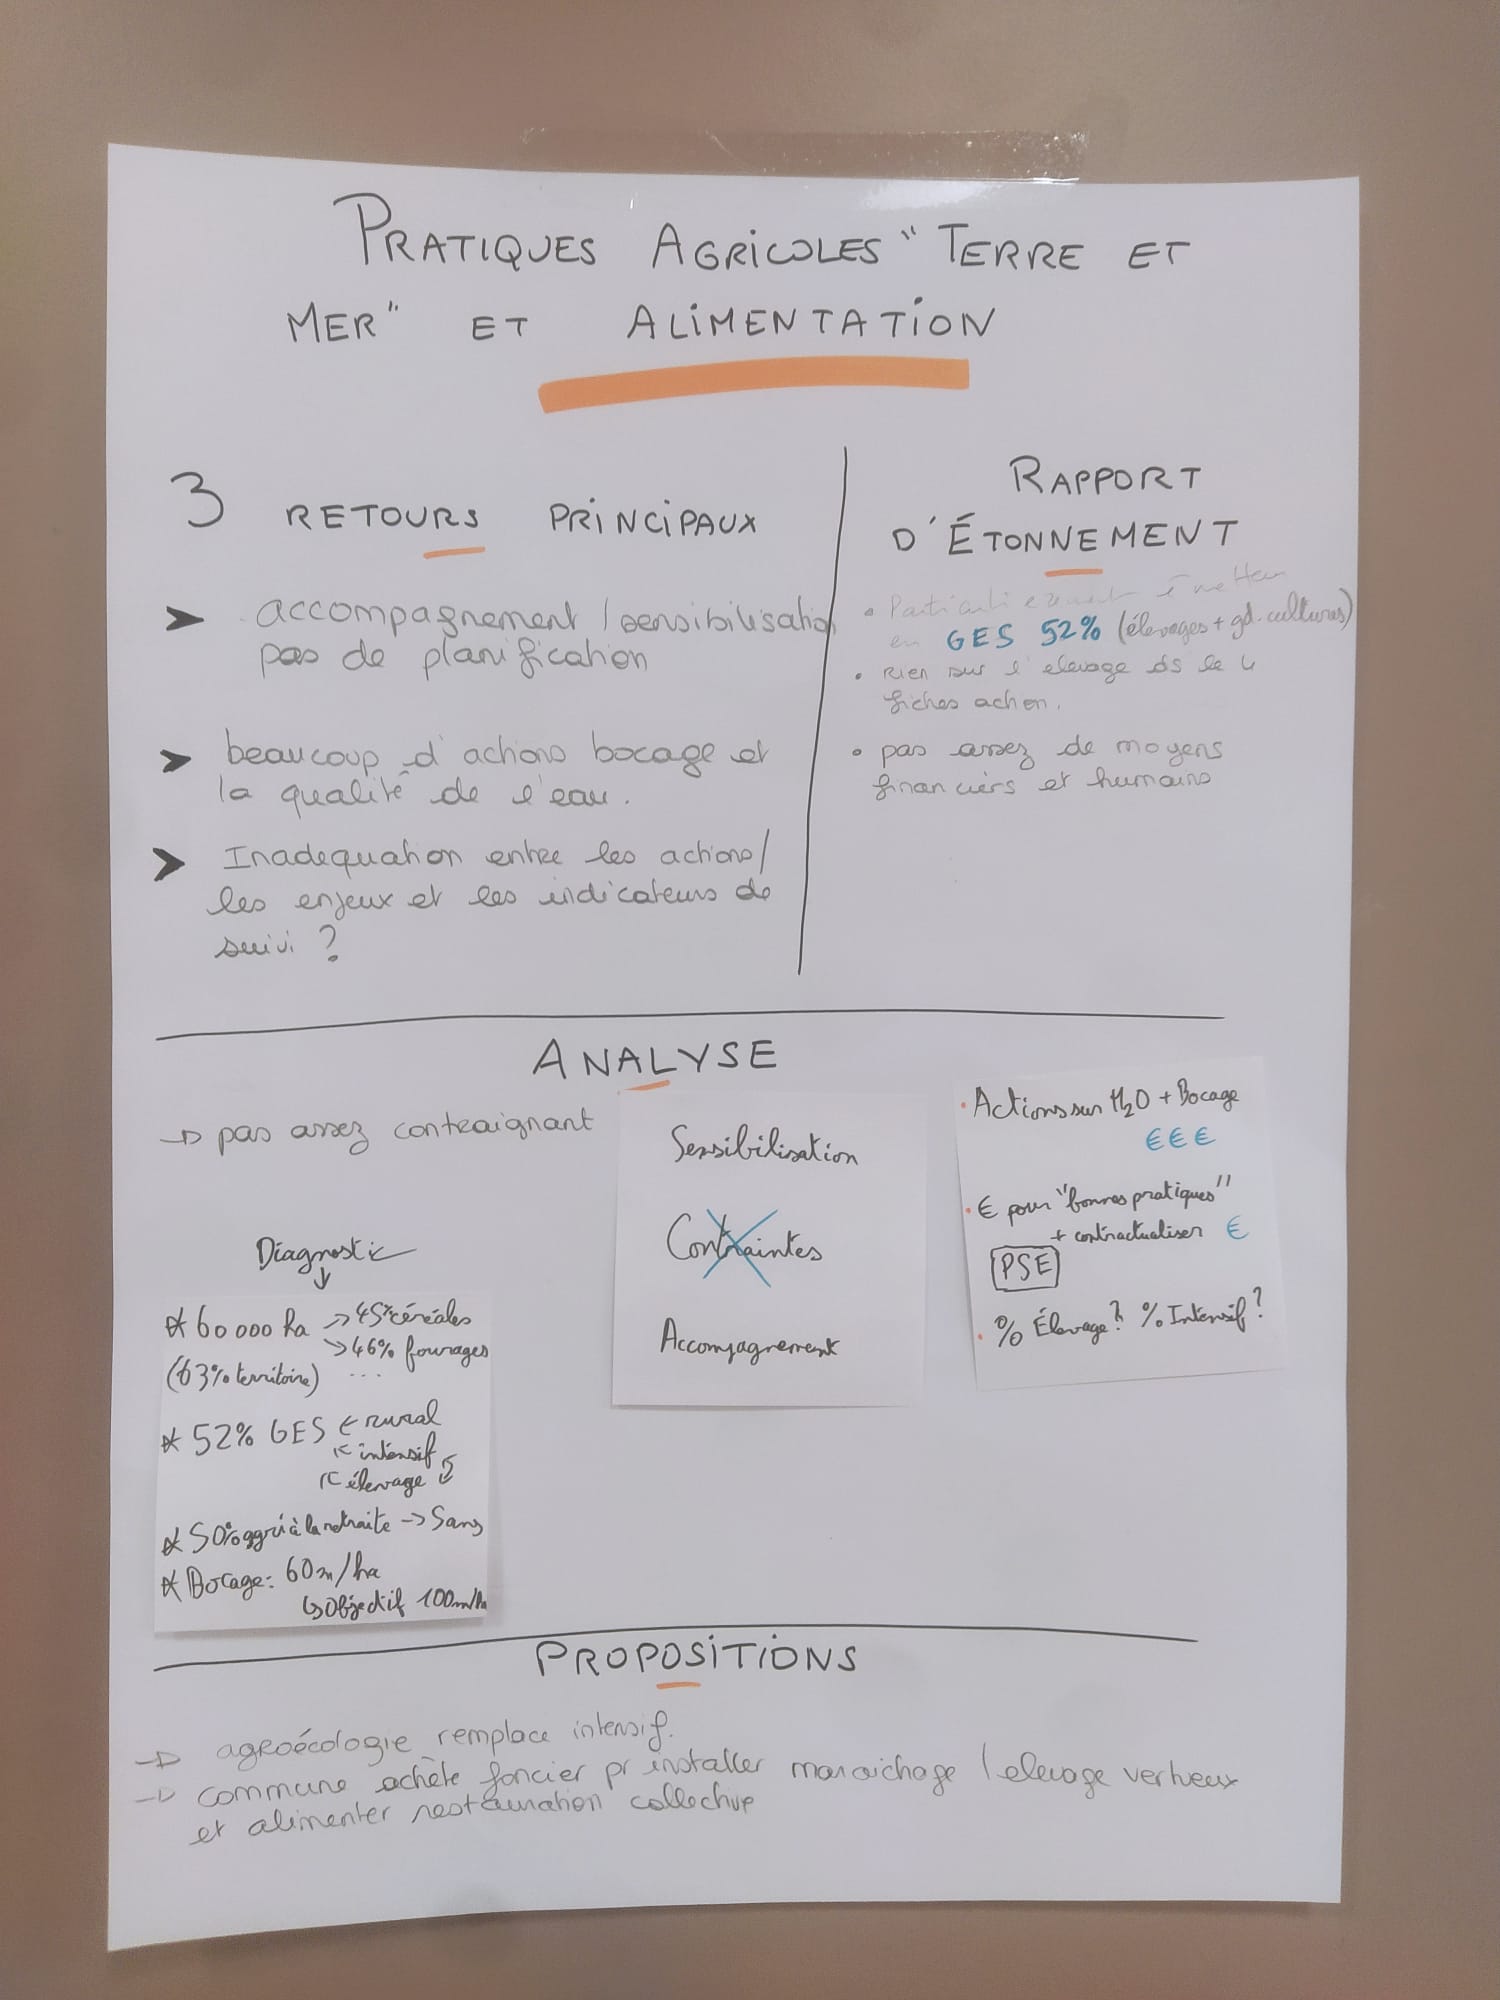 PRATIQUES AGRICOLES "TERRE ET
MER" ET ALIMENTATION
3 RETOURS PRINCIPAUX
➤ accompagnement / sensibilisation
pas de planification
➤ beaucoup d'actions bocage et
la qualité de l'eau.
➤ Inadequation entre les actions/
les enjeux et les indicateurs de
suivi ?
RAPPORT
D'ÉTONNEMENT
• Particulièrement émetteur
en GES 52% (élevages + gd. cultures)
• Rien sur l'elevage ds le 4
fiches action.
• pas assez de moyens
financiers et humains
ANALYSE
→ pas assez contraignant
Diagnostic
↓
* 60 000 ha → 45% céréales
→ 46% fourrages
(63% territoire) ...
* 52% GES ← rural
← intensif
← élevage
* 50% agri à la retraite → 5ans
* Bocage: 60m/ha
↳ Objectif 100m/ha
Sensibilisation
Contraintes
Accompagnement
• Actions sur H2O + Bocage
€€€
• € pour "bonnes pratiques"
+ contractualiser €
PSE
• % Élevage? % Intensif?
PROPOSITIONS
→ agroécologie remplace intensif.
→ commune achète foncier pr installer maraichage / elevage vertueux
et alimenter restauration collective